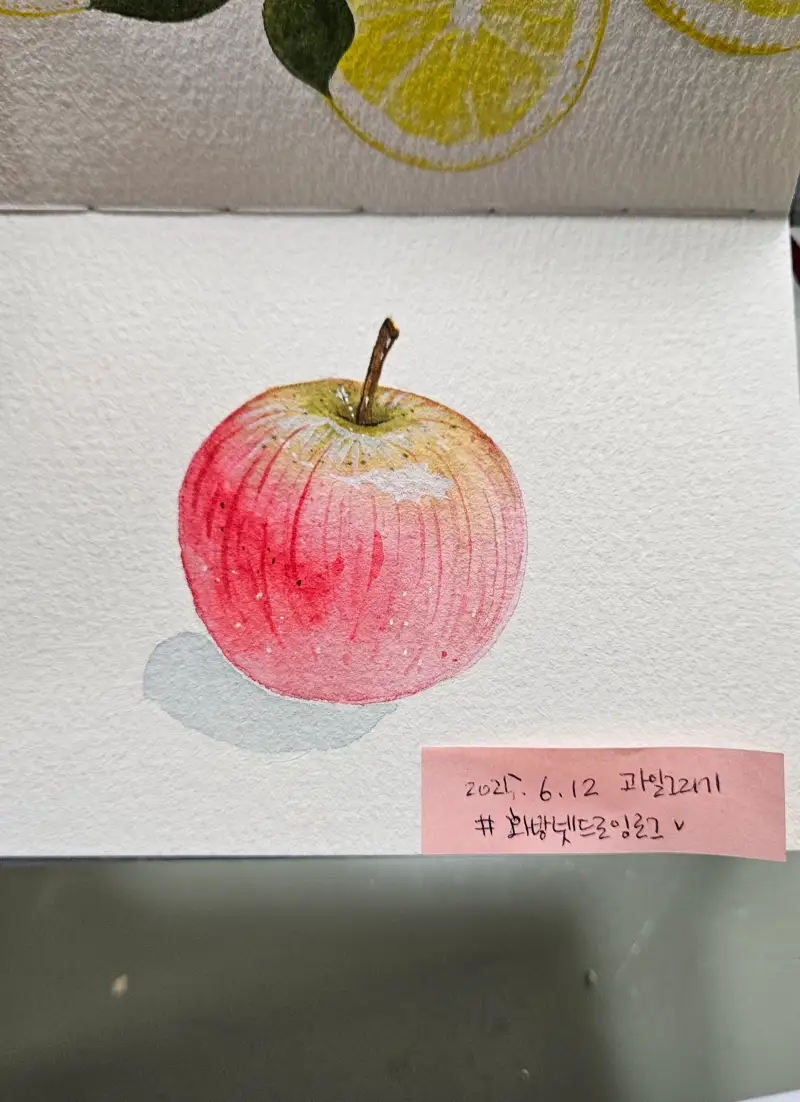 2025. 6.12 과일그리기
# 화방넷드로잉로그